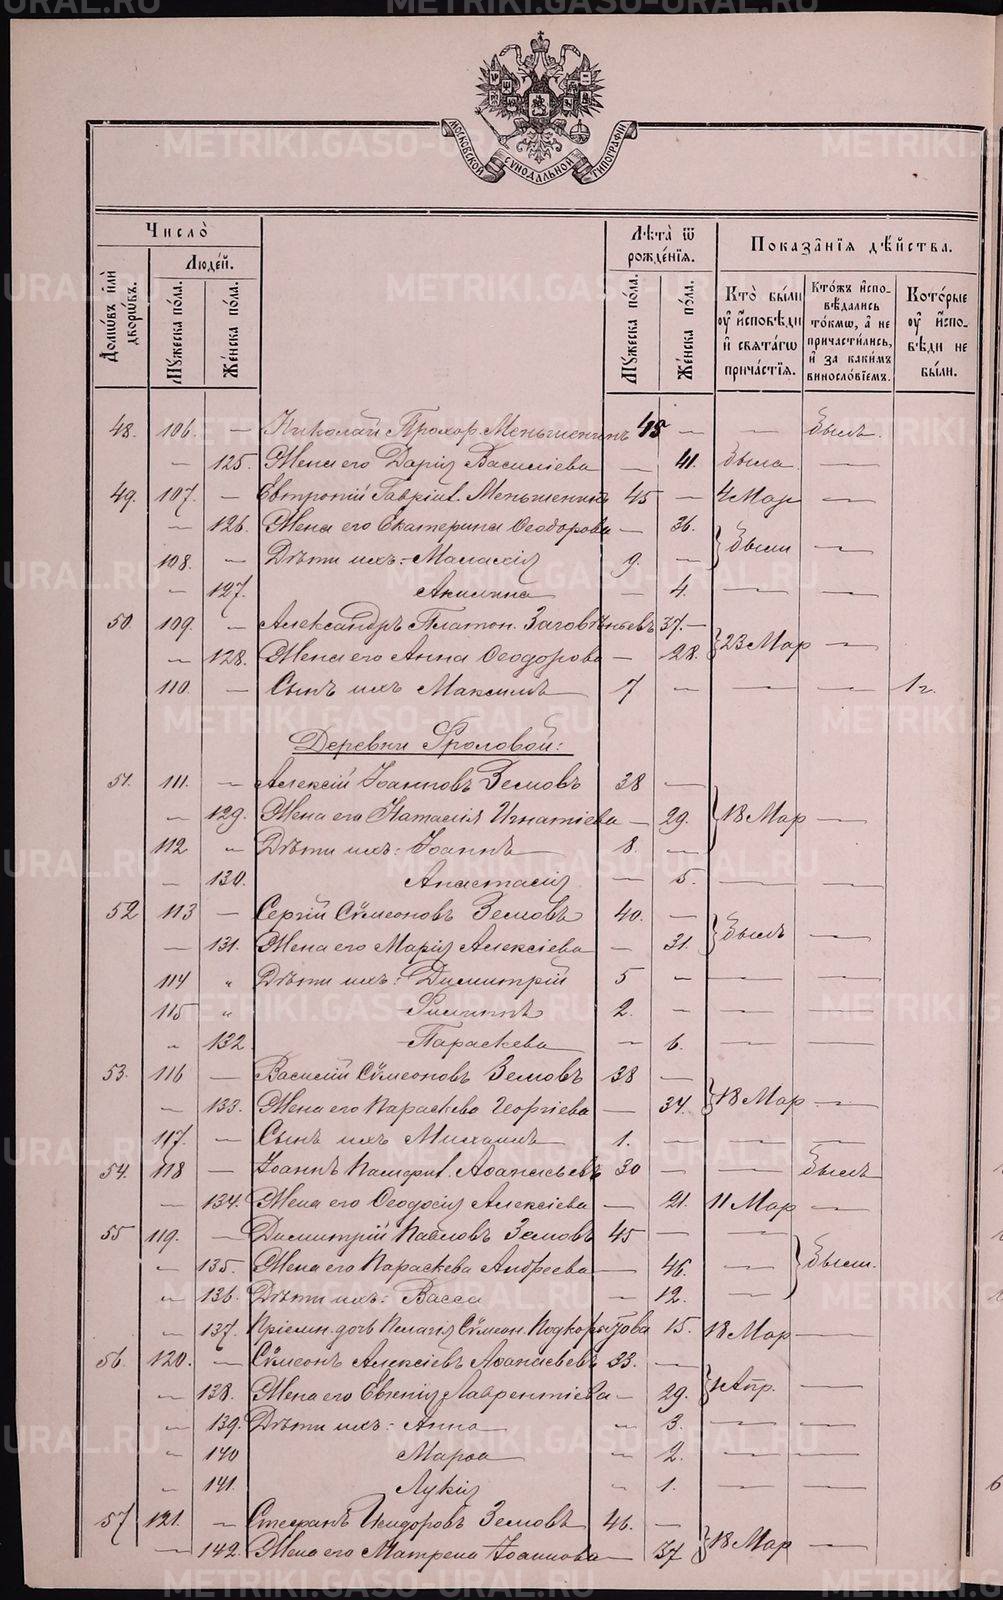 МОСКОВСКОЙ СѴНОДАЛЬНОЙ ТИПОГРАФІИ
Число̀
Людéй.
Домѡ́въ и҆лѝ дворѡ́въ.
Мꙋ́жеска по́ла.
Же́нска по́ла.
Лѣ́та ѿ рожде́нїѧ.
Мꙋ́жеска по́ла.
Же́нска по́ла.
Показа̑нїѧ дѣ́йства.
Кто̀ бы́ли ᲂу҆ и҆сповѣ́ди и҆ свѧта́гѡ прича́стїѧ.
Кто́жъ и҆сповѣ́дались то́кмѡ, а҆ не причасти́лись, и҆ за каки́мъ винословїемъ.
Кото́рые ᲂу҆ и҆сповѣ́ди не бы́ли.
48. 106. — Николай Прохор. Меньшенинъ 45 — — былъ.
— 125. Жена его Дарія Василіева — 41. была —
49. 107. — Евтропій Гавріил. Меньшенинъ 45 — 4 Мар —
— 126. Жена его Екатерина Ѳеодорова — 36. } были —
108. — Дѣти ихъ: Малахія 9. —
— 127. Акилина — 4. — —
50 109. — Александръ Платон. Заговѣньевъ 37. —
— 128. Жена его Анна Ѳеодорова — 28. } 23 Мар —
110. — Сынъ ихъ Максимъ 7 — — — 1 г.
Деревни Фроловой:
51. 111. — Алексій Іоанновъ Земовъ 38 —
— 129. Жена его Наталія Игнатіева — 29. } 18 Мар —
112 „ Дѣти ихъ: Іоаннъ 8. —
— 130. Анастасія — 5. — —
52 113 — Сергій Сѵмеоновъ Земовъ 40. —
— 131. Жена его Марія Алексіева — 31. } былъ —
114 „ Дѣти ихъ: Димитрій 5 — — —
115 „ Филиппъ 2. — — —
„ 132. Параскева — 6. — —
53. 116 — Василій Сѵмеоновъ Земовъ 38 —
— 133. Жена его Параскева Георгіева — 34. } 18 Мар —
117. — Сынъ ихъ Михаилъ 1. — — —
54. 118 — Іоаннъ Памфил. Аѳанасьевъ 30 — — былъ
— 134. Жена его Ѳеодосія Алексіева — 21. 11 Мар —
55 119. — Димитрій Павловъ Земовъ 45 — —
„ 135. Жена его Параскева Андреева — 46. — } были.
„ 136. Дѣти ихъ: Васса — 12. —
„ 137. Пріемн. дочь Пелагія Сѵмеон. Подкорытова 15. 18 Мар —
56. 120. — Сѵмеонъ Алексіевъ Аѳанасьевъ 33. —
„ 138. Жена его Евгенія Лаврентіева — 29. } 1 Апр. —
„ 139. Дѣти ихъ: Анна „ 3. — —
„ 140 Марѳа „ 2. — —
„ 141. Лукія „ 1. — —
57 121. — Стефанъ Исидоровъ Земовъ 46. —
— 142. Жена его Матрена Іоаннова — 37 } 18 Мар —
METRIKI.GASO-URAL.RU